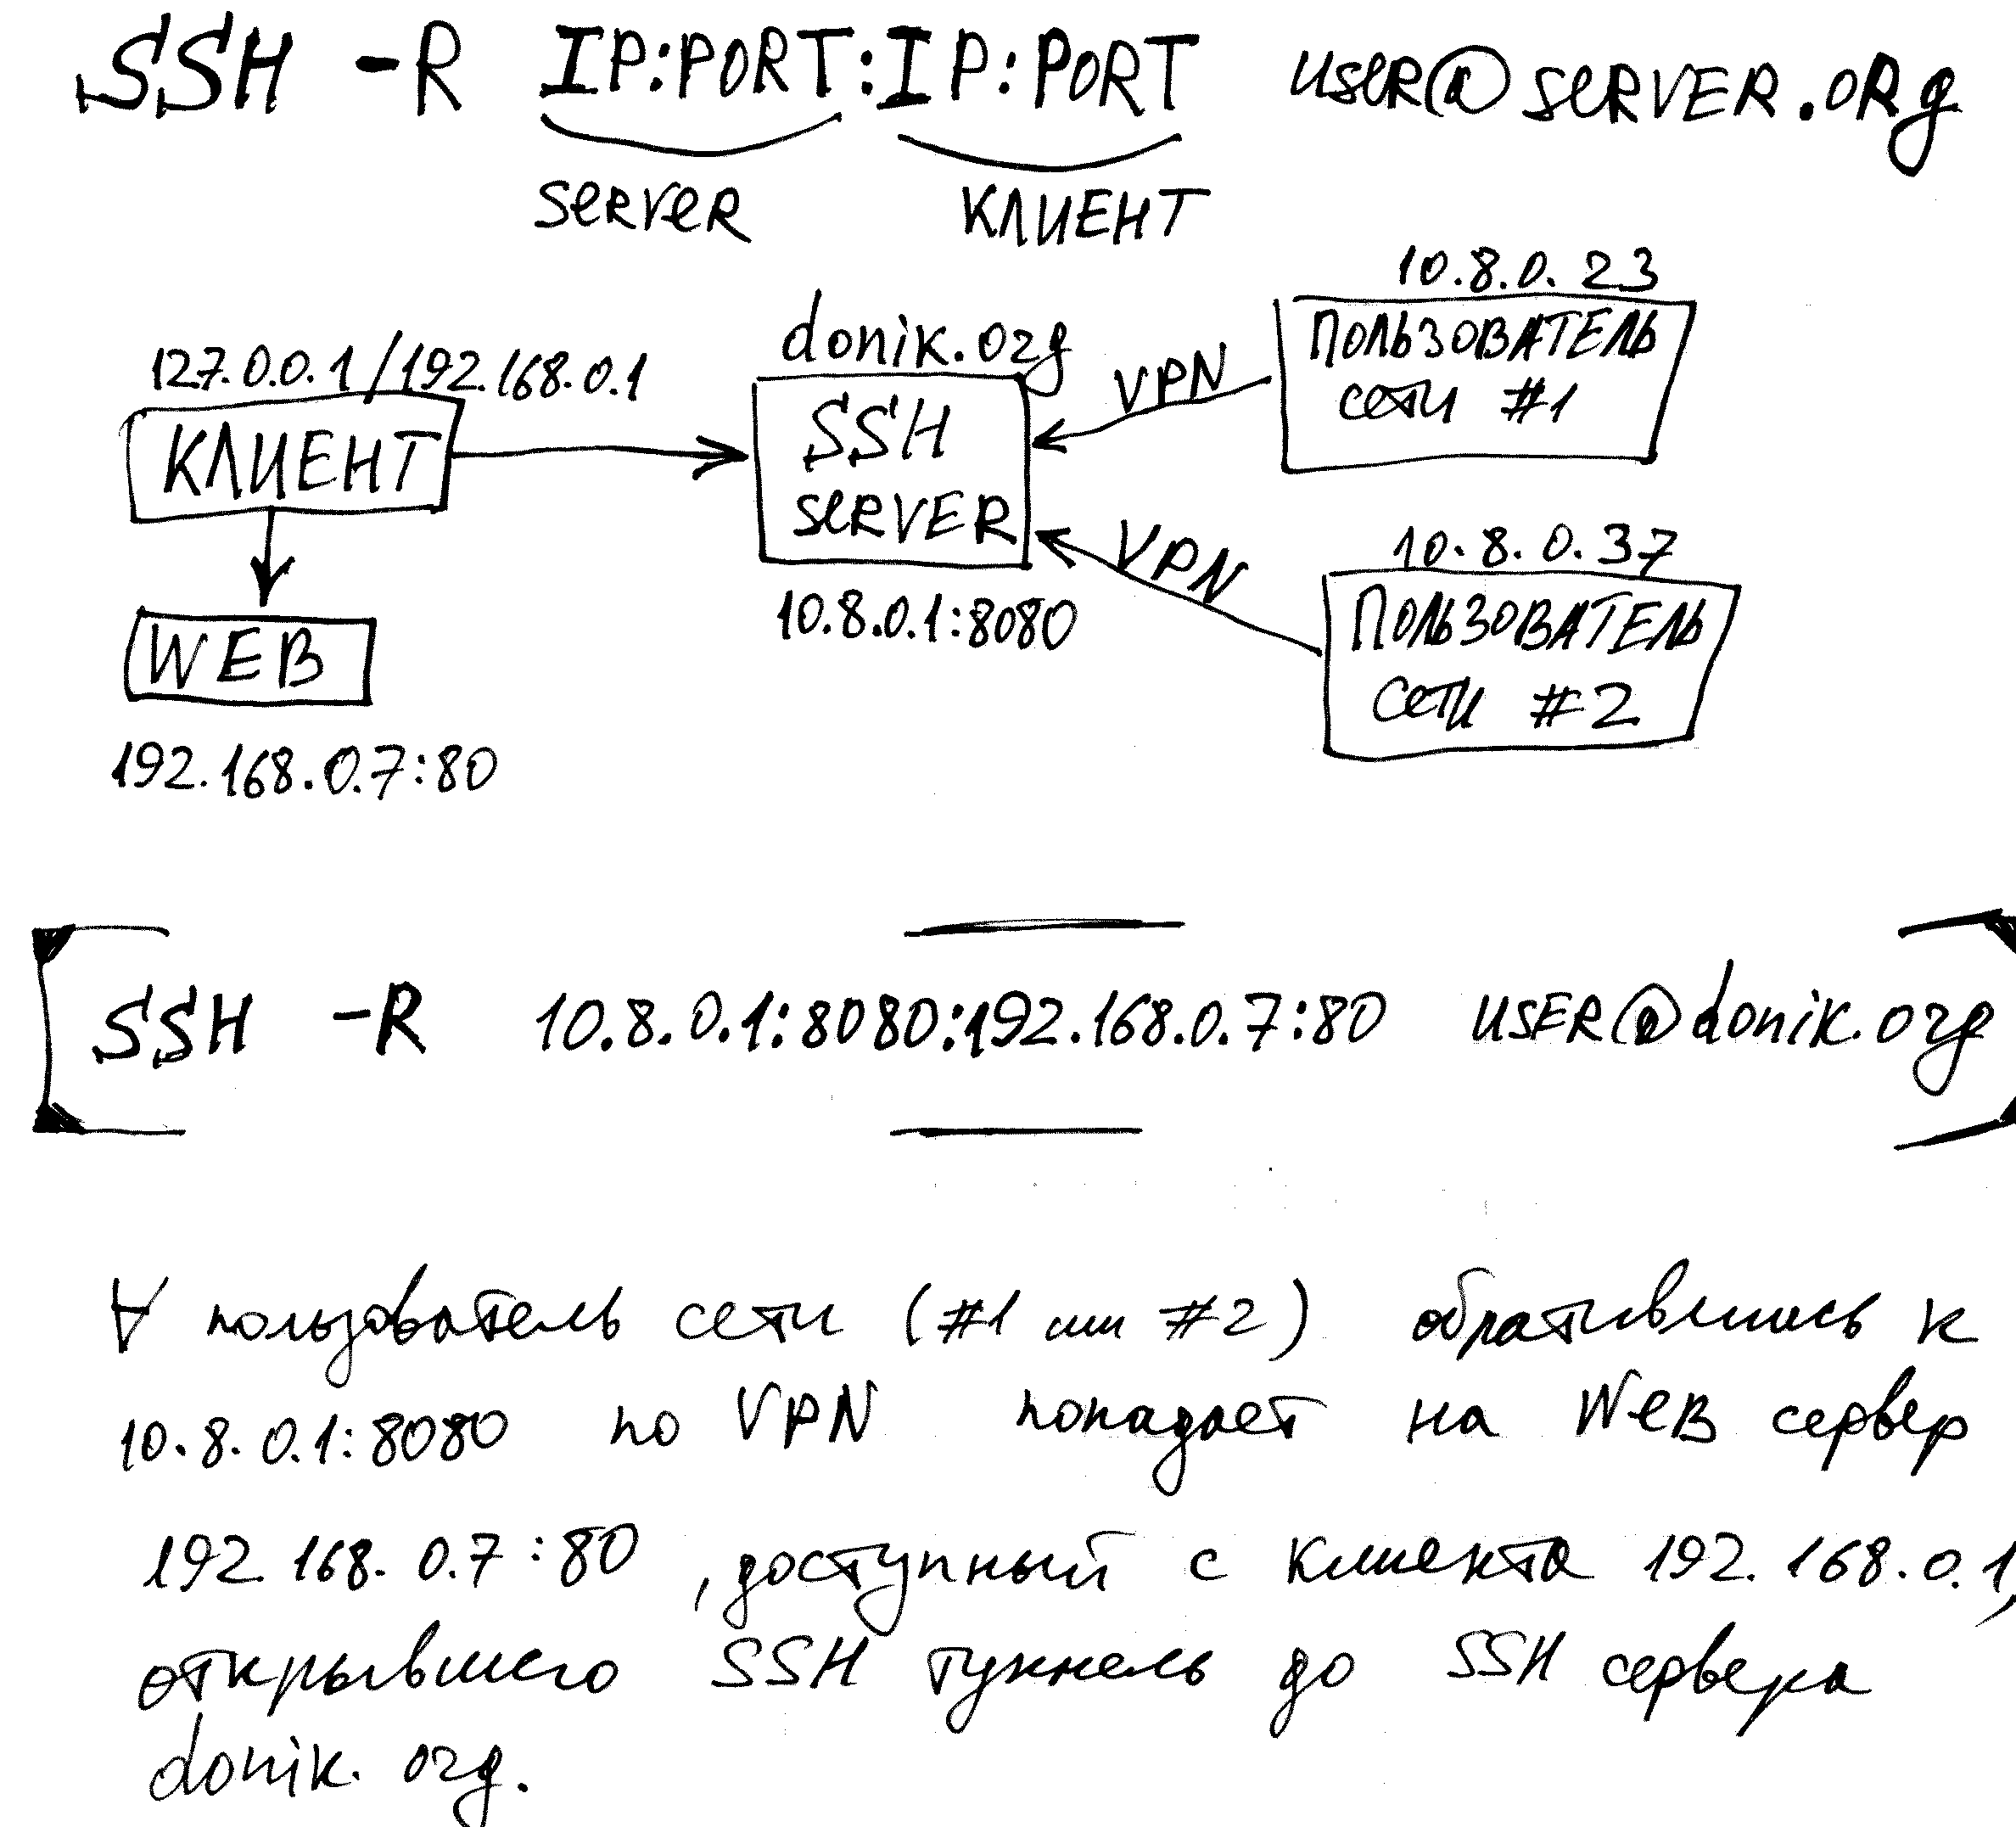 SSH -R IP:PORT:IP:PORT USER@SERVER.ORg
SERVER КЛИЕНТ
10.8.0.23
donik.org
ПОЛЬЗОВАТЕЛЬ
127.0.0.1/192.168.0.1
VPN
СЕТИ #1
КЛИЕНТ
SSH
SERVER
VPN
10.8.0.37
10.8.0.1:8080
ПОЛЬЗОВАТЕЛЬ
WEB
СЕТИ #2
192.168.0.7:80
SSH -R 10.8.0.1:8080:192.168.0.7:80 USER@donik.org
∀ пользователь сети (#1 или #2) обратившись к
10.8.0.1:8080 по VPN попадает на WEB сервер
192.168.0.7:80, доступный с клиента 192.168.0.1,
открывшего SSH туннель до SSH сервера
donik.org.